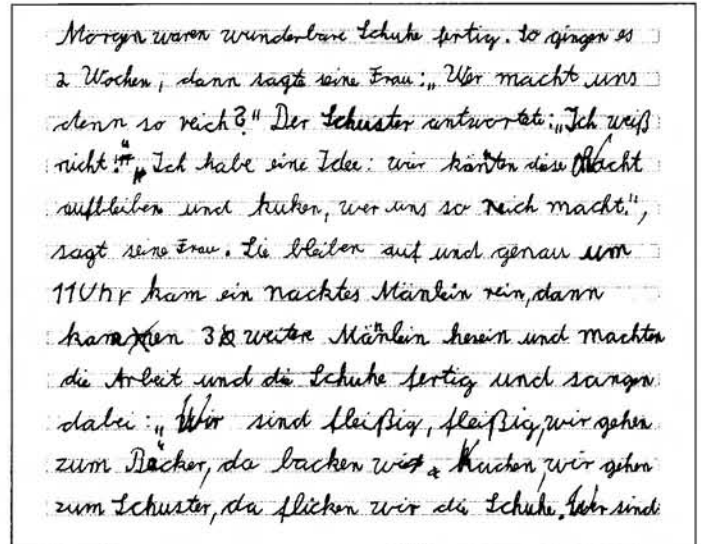 Morgen waren wunderbare Schuhe fertig. So gingen es
2 Wochen, dann sagte seine Frau: „Wer macht uns
denn so reich?" Der Schuster antwortete: „Ich weiß
nicht." „Ich habe eine Idee: wir könnten diese Nacht
aufbleiben und kuken, wer uns so reich macht.",
sagt seine Frau. Sie bleiben auf und genau um
11 Uhr kam ein nacktes Mänlein rein, dann
kamen 3 weitere Mänlein herein und machten
die Arbeit und die Schuhe fertig und sangen
dabei: „Wir sind fleißig, fleißig, wir gehen
zum Bäcker, da backen wir Kuchen, wir gehen
zum Schuster, da flicken wir die Schuhe. Wir sind